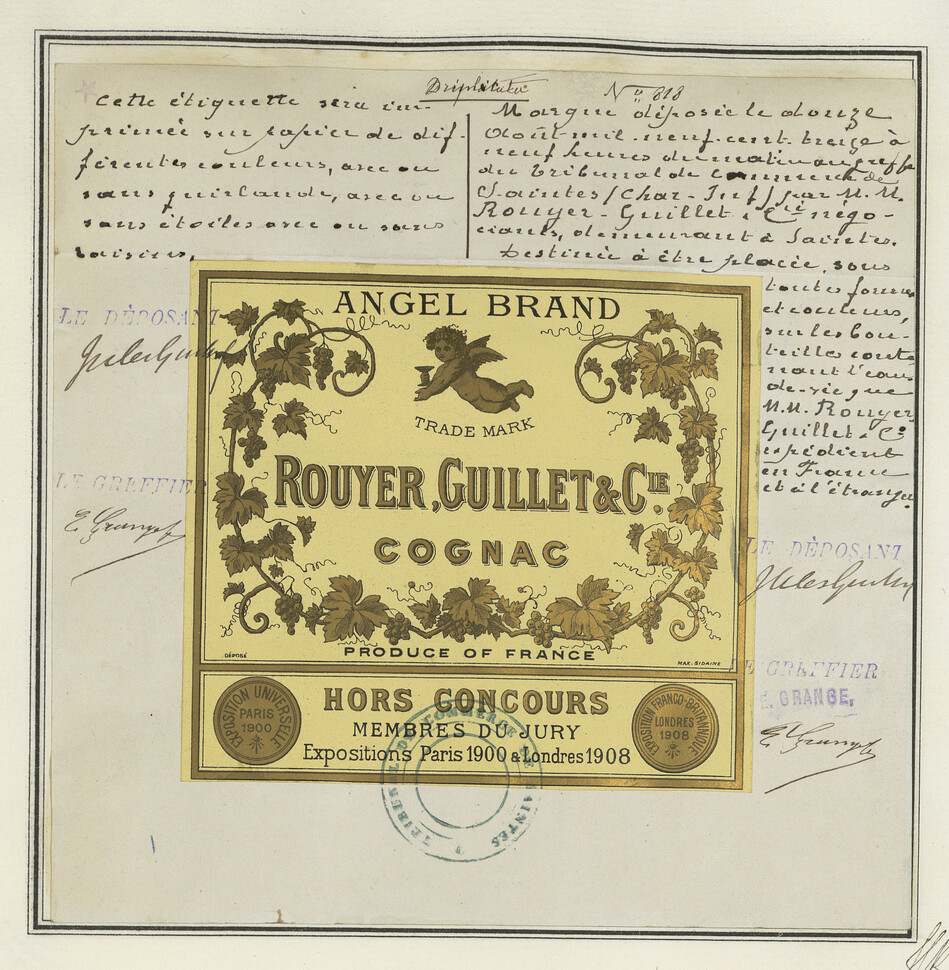 Triplicata
Nº 818
Cette étiquette sera im-
primée sur papier de dif-
férentes couleurs, avec ou
sans guirlande, avec ou
sans étoiles avec ou sans
raisins.
Marque déposée le douze
Août mil-neuf-cent-treize à
neuf heures du matin au greffe
du tribunal de commerce de
Saintes (Char-Inf) par M.M.
Rouyer-Guillet & Cie négo-
ciants, demeurant à Saintes.
Destinée à être placée, sous
toutes formes
et couleurs,
sur les bou-
teilles conte
nant l'eau
de-vie que
M.M. Rouyer
Guillet & Cº
expédient
en France
et à l'étranger
LE DÉPOSANT
Jules Guillet
LE GREFFIER
E. Grange
ANGEL BRAND
TRADE MARK
ROUYER, GUILLET & CIE.
COGNAC
PRODUCE OF FRANCE
DÉPOSÉ
MAX. SIDAINE
EXPOSITION UNIVERSELLE
PARIS
1900
HORS CONCOURS
MEMBRES DU JURY
Expositions Paris 1900 & Londres 1908
EXPOSITION FRANCO-BRITANNIQUE
LONDRES
1908
LE DÉPOSANT
Jules Guillet
LE GREFFIER
E. GRANGE.
E. Grange
TRIBUNAL DE COMMERCE DE SAINTES